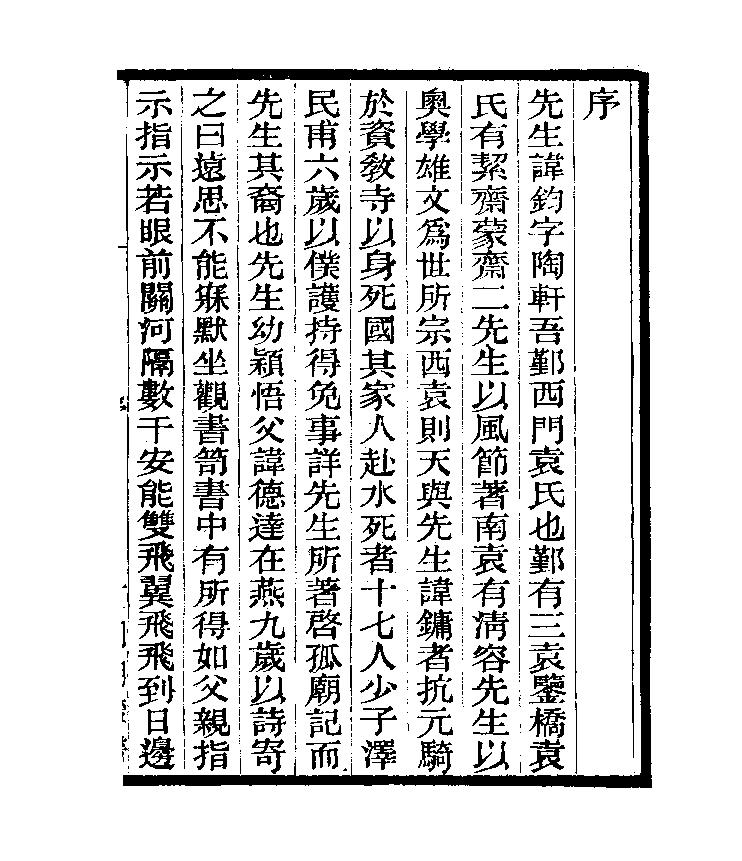 序
先生諱鈞字陶軒吾鄞西門袁氏也鄞有三袁鑒橋袁
氏有絜齋蒙齋二先生以風節著南袁有淸容先生以
奧學雄文爲世所宗西袁則天與先生諱鏞者抗元騎
於資敎寺以身死國其家人赴水死者十七人少子澤
民甫六歲以僕護持得免事詳先生所著啓孤廟記而
先生其裔也先生幼穎悟父諱德達在燕九歲以詩寄
之曰遠思不能寐默坐觀書笥書中有所得如父親指
示指示若眼前關河隔數千安能雙飛翼飛飛到日邊